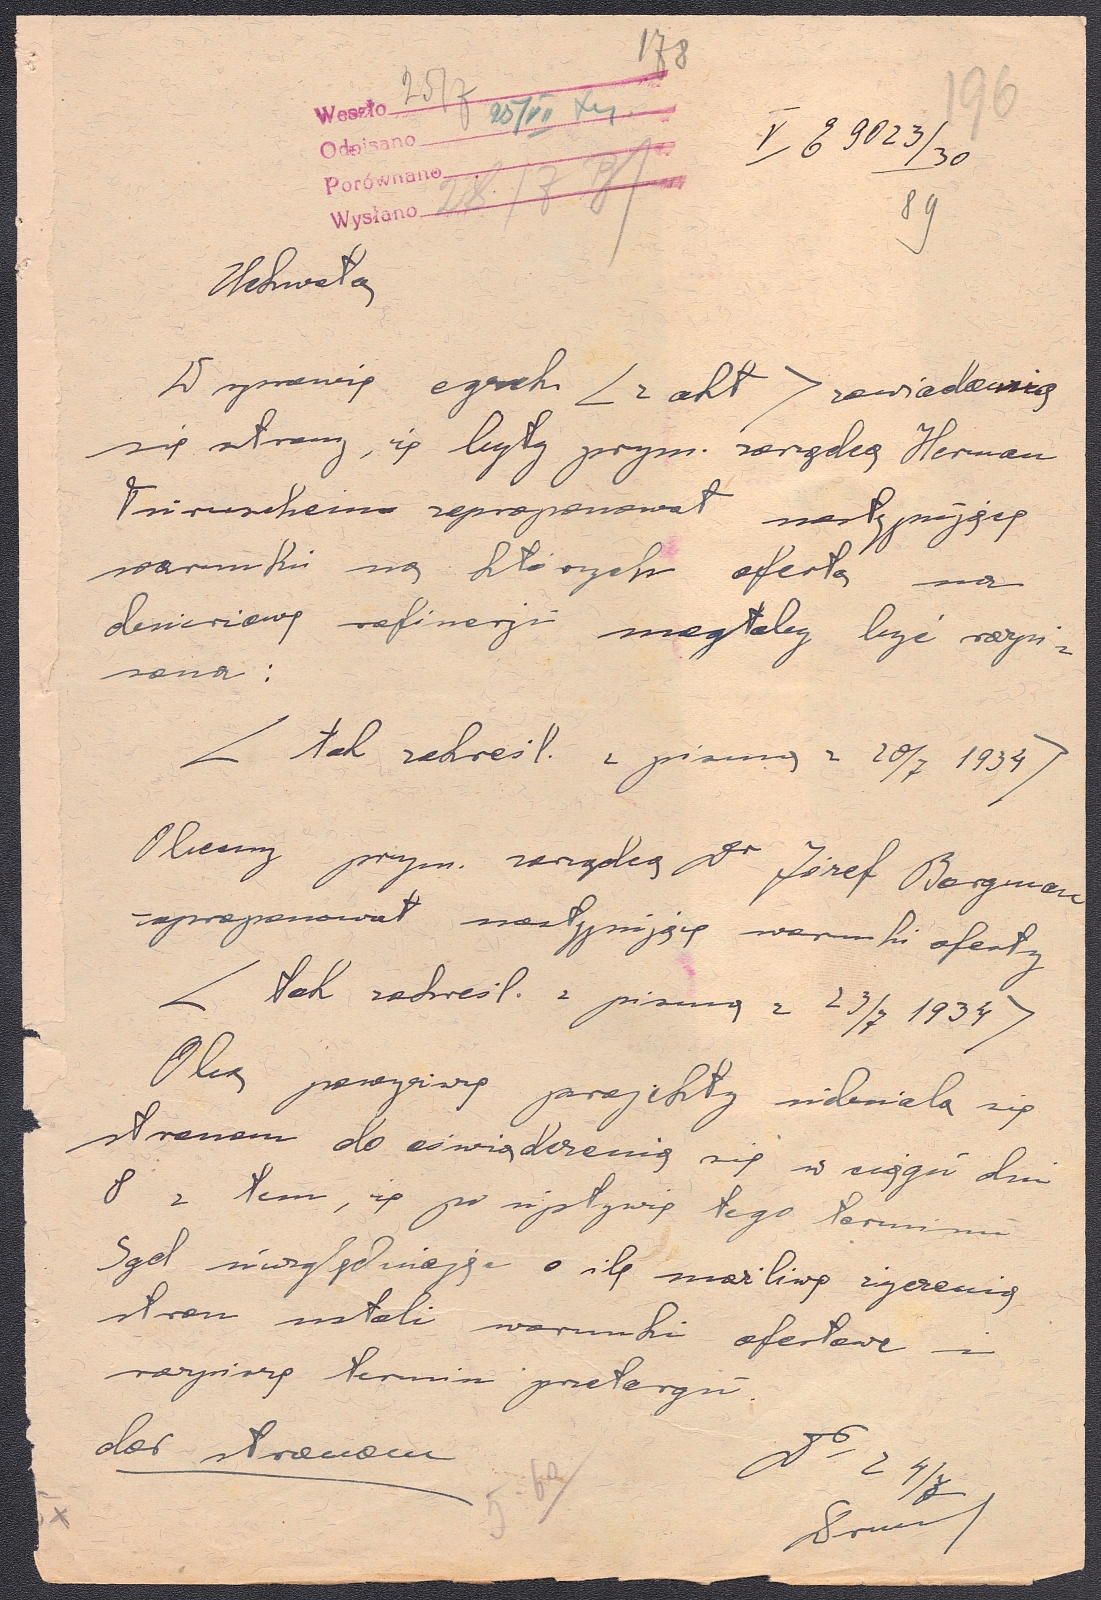 178
196
Weszło 25/7
Odpisano 25/VII
Porównano
Wysłano 28/7
V E 9023/30
89
Uchwała
W sprawie egzek. < z akt > zawiadamia
się strony, iż były przym. zarządca Herman
zaproponował następujące
warunki na których oferta na
dzierżawę rafinerji mogłaby być rozpi-
sana :
< tak zakreśl. z pisma z 20/7 1934 >
Obecny przym. zarządca Dr Józef Bergman
zaproponował następujące warunki oferty
< tak zakreśl. z pisma z 23/7 1934 >
Oba powyższe projekty udziela się
stronom do oświadczenia się w ciągu dni
8 z tem, że po upływie tego terminu
Sąd uwzględniając o ile możliwe życzenia
stron ustali warunki ofertowe i
rozpisze termin przetargu.
dor stronom
24/7